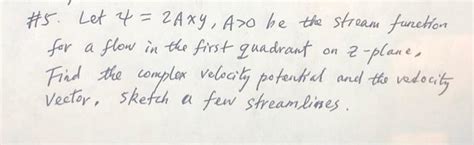 #5. Let ψ = 2Axy, A>0 be the stream function
for a flow in the first quadrant on z-plane,
Find the complex velocity potential and the velocity
vector, sketch a few streamlines.